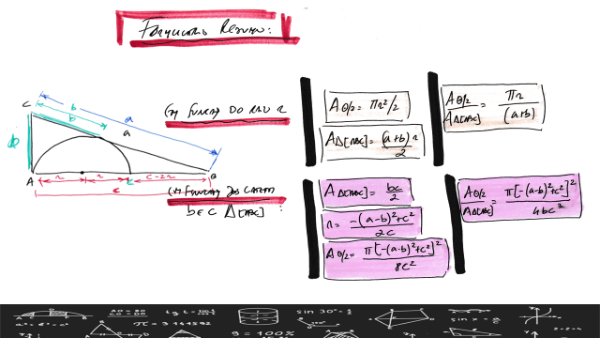 Formulário Resumo:
C
b
b
a
a
b
A
B
r
r
c-2r
c
Em função do raio r
Em função dos catetos
b e c Δ[ABC]
A⊖/2 = πr²/2
AΔ[ABC] = (a+b)r/2
A⊖/2 / AΔ[ABC] = πr/(a+b)
AΔ[ABC] = bc/2
r = -(a-b)²+c² / 2c
A⊖/2 = π[-(a-b)²+c²]² / 8c²
A⊖/2 / AΔ[ABC] = π[-(a-b)²+c²]² / 4bc³
π = 3.141592
sin 30° = ½
g = 100%